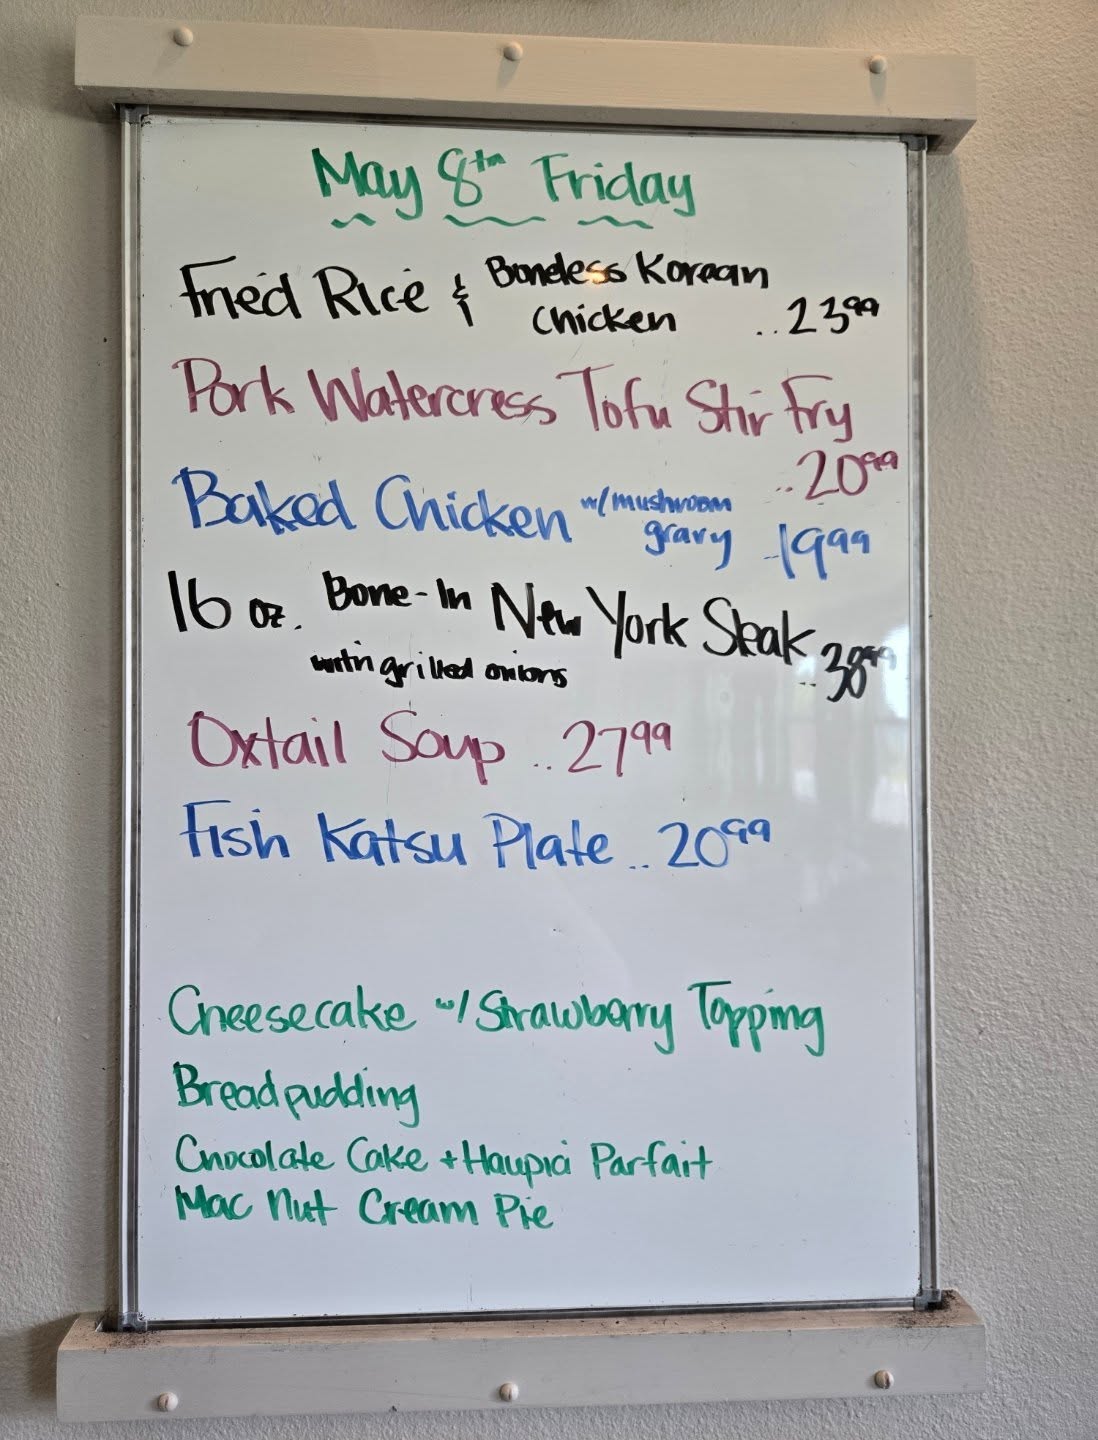 May 8th Friday
Fried Rice & Boneless Korean
Chicken ..23.99
Pork Watercress Tofu Stir Fry
..20.99
Baked Chicken w/mushroom
gravy ..19.99
16 oz. Bone-In New York Steak
with grilled onions ..38.99
Oxtail Soup ..27.99
Fish Katsu Plate ..20.99
Cheesecake w/Strawberry Topping
Bread pudding
Chocolate Cake + Haupia Parfait
Mac Nut Cream Pie